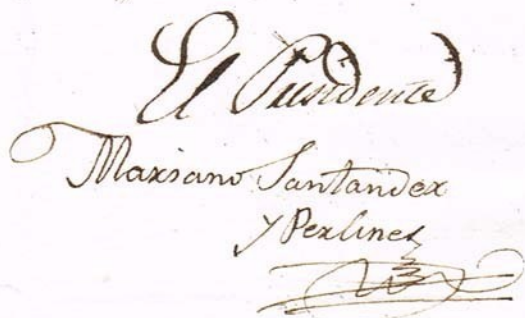 El Presidente
Mariano Santander
y Perlines